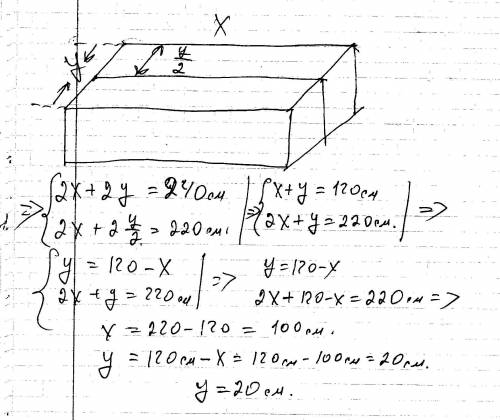 x
y
y/2
=> { 2x + 2y = 240см | => { x + y = 120см | =>
2x + 2 y/2 = 220см. | 2x + y = 220см. |
{ y = 120 - x | => y = 120 - x
2x + y = 220см | 2x + 120 - x = 220см =>
x = 220 - 120 = 100см.
y = 120см - x = 120см - 100см = 20см.
y = 20см.